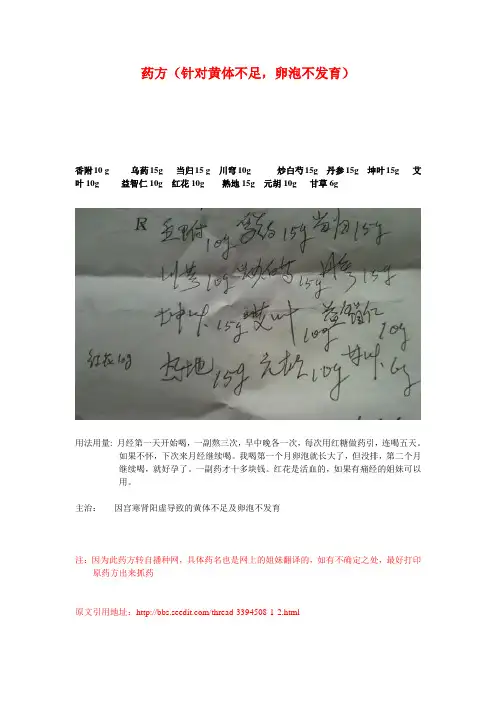 药方（针对黄体不足，卵泡不发育）
香附10 g 乌药15g 当归15 g 川穹10g 炒白芍15g 丹参15g 坤叶15g 艾
叶10g 益智仁10g 红花10g 熟地15g 元胡10g 甘草6g
R 香附10g 乌药15g 当归15g
川芎10g 炒白芍15g 丹参15g
坤叶15g 艾叶10g 益智仁10g
红花10g 熟地15g 元胡10g 甘草6g
用法用量: 月经第一天开始喝，一副熬三次，早中晚各一次，每次用红糖做药引，连喝五天。
如果不怀，下次来月经继续喝。我喝第一个月卵泡就长大了，但没排，第二个月
继续喝，就好孕了。一副药才十多块钱。红花是活血的，如果有痛经的姐妹可以
用。
主治： 因宫寒肾阳虚导致的黄体不足及卵泡不发育
注：因为此药方转自播种网，具体药名也是网上的姐妹翻译的，如有不确定之处，最好打印
原药方出来抓药
原文引用地址：http://bbs.seedit.com/thread-3394508-1-2.html